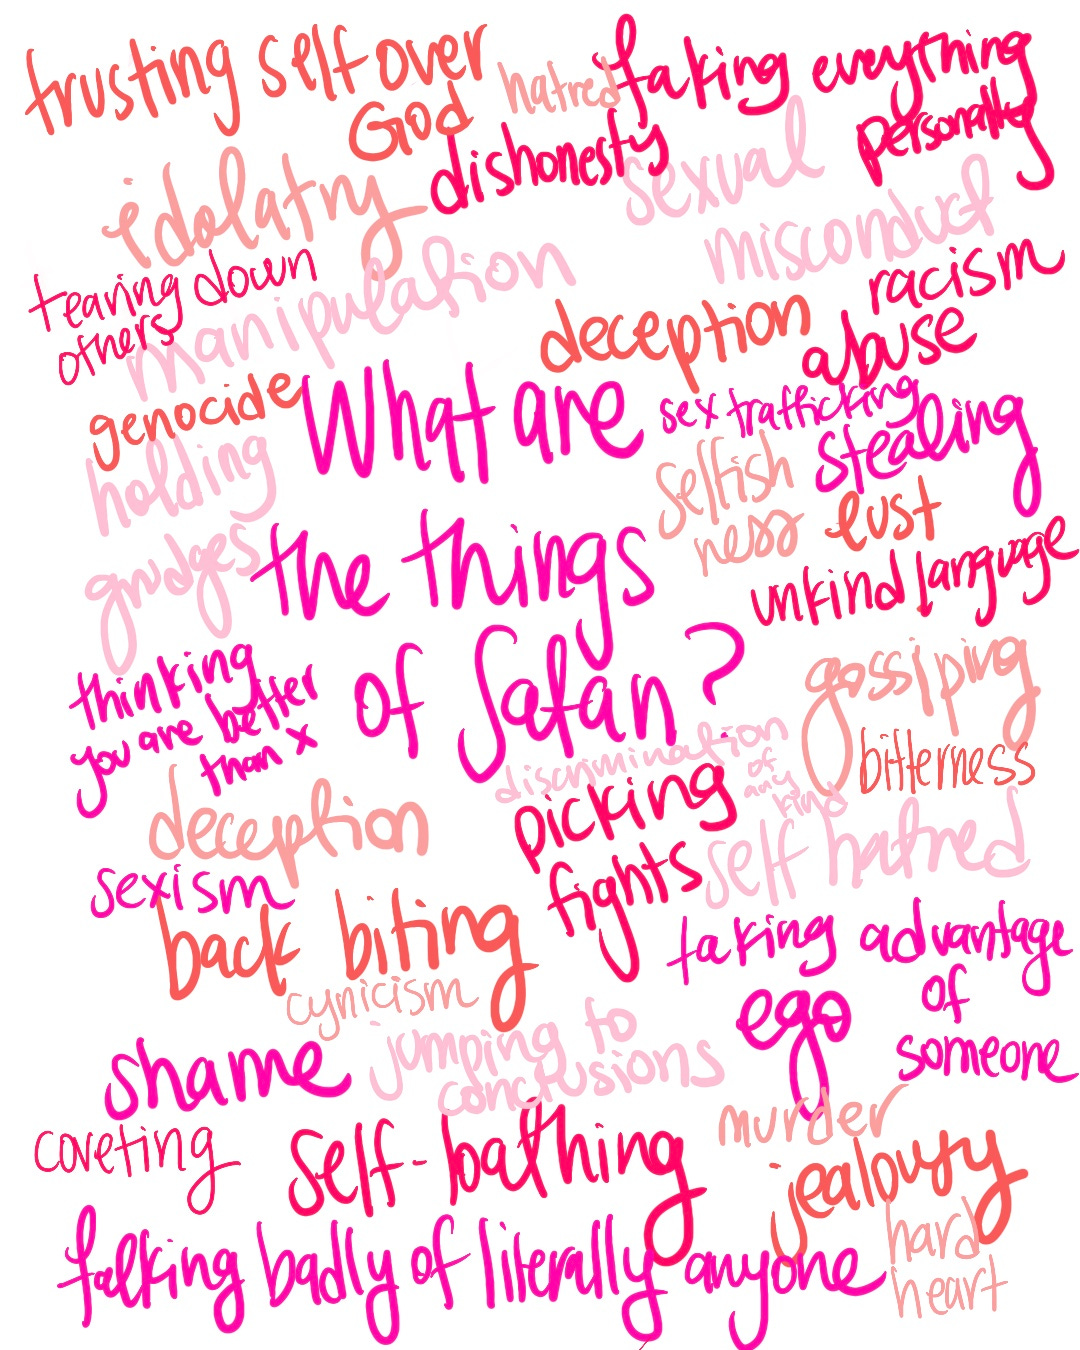 trusting self over
God
hatred
taking everything
personally
dishonesty
idolatry
sexual
misconduct
tearing down
others
manipulation
racism
deception
abuse
genocide
What are
sex trafficking
stealing
holding
grudges
selfish
ness
lust
the things
unkind language
of Satan?
thinking
you are better
than x
gossiping
discrimination
of
any
kind
bitterness
deception
picking
fights
self hatred
sexism
back biting
taking advantage
of
someone
cynicism
ego
jumping to
conclusions
shame
murder
coveting
self-loathing
jealousy
talking badly of literally anyone
hard
heart